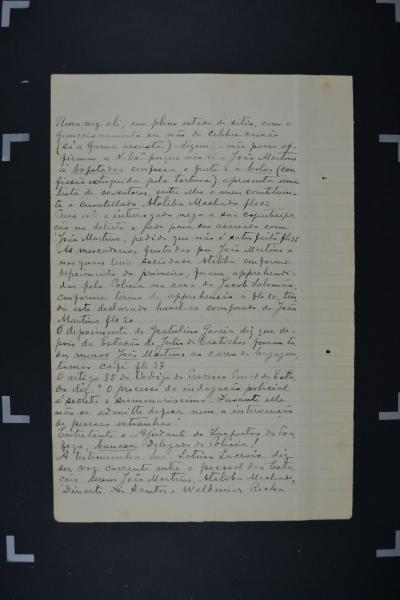 Uma vez ali, em pleno estado de sitio, com o
funccionamento ou não do celebre caixão
(só a forma assusta) - digem, - não posso af-
firmar a V. Exª porque não vi - João Martins
à bofetadas confessa o furto e a bolos (con-
fissão extorquida pela tortura) apresenta uma
lista de coautores, entre elles o meu constituin-
te o avantellado Ataliba Machado fls 12
Preso este e interrogado nega a sua coparticipa-
ção no delicto e pede para ser acareado com
João Martins, pedido que não é satisfeito fls 15
As mercadorias furtadas por João Martins e
nas quaes teve sociedade Ataliba conforme
depoimento do primeiro, foram apprehendi-
das pela Policia na casa de Jacob Salomão,
conforme termo de apprehensão a fls 10, ten-
do este declarado havel-as comprado de João
Martins fls 20
O depoimento de Gratulino Garcia diz que de-
pois da Estação de Julio de Castilhos foram to-
dos menos João Martins ao carro de bagagem,
tomar café fls 37
O artigo 85 do Codigo do Processo Penal do Esta-
do diz: "O processo da indagação policial
é secreto e summarissimo. Durante elle
não se admitte defesa nem a intervenção
de pessoas extranhas."
Entretanto o Ajudante do Inspector do Tra-
fego, bancou Delegado de Policia!
A testemunha Snr. Lotario Lacroix diz
ser voz corrente entre o pessoal das Esta-
ções serem João Martins, Ataliba Machado,
Dinarte dos Santos e Waldemar Rocha